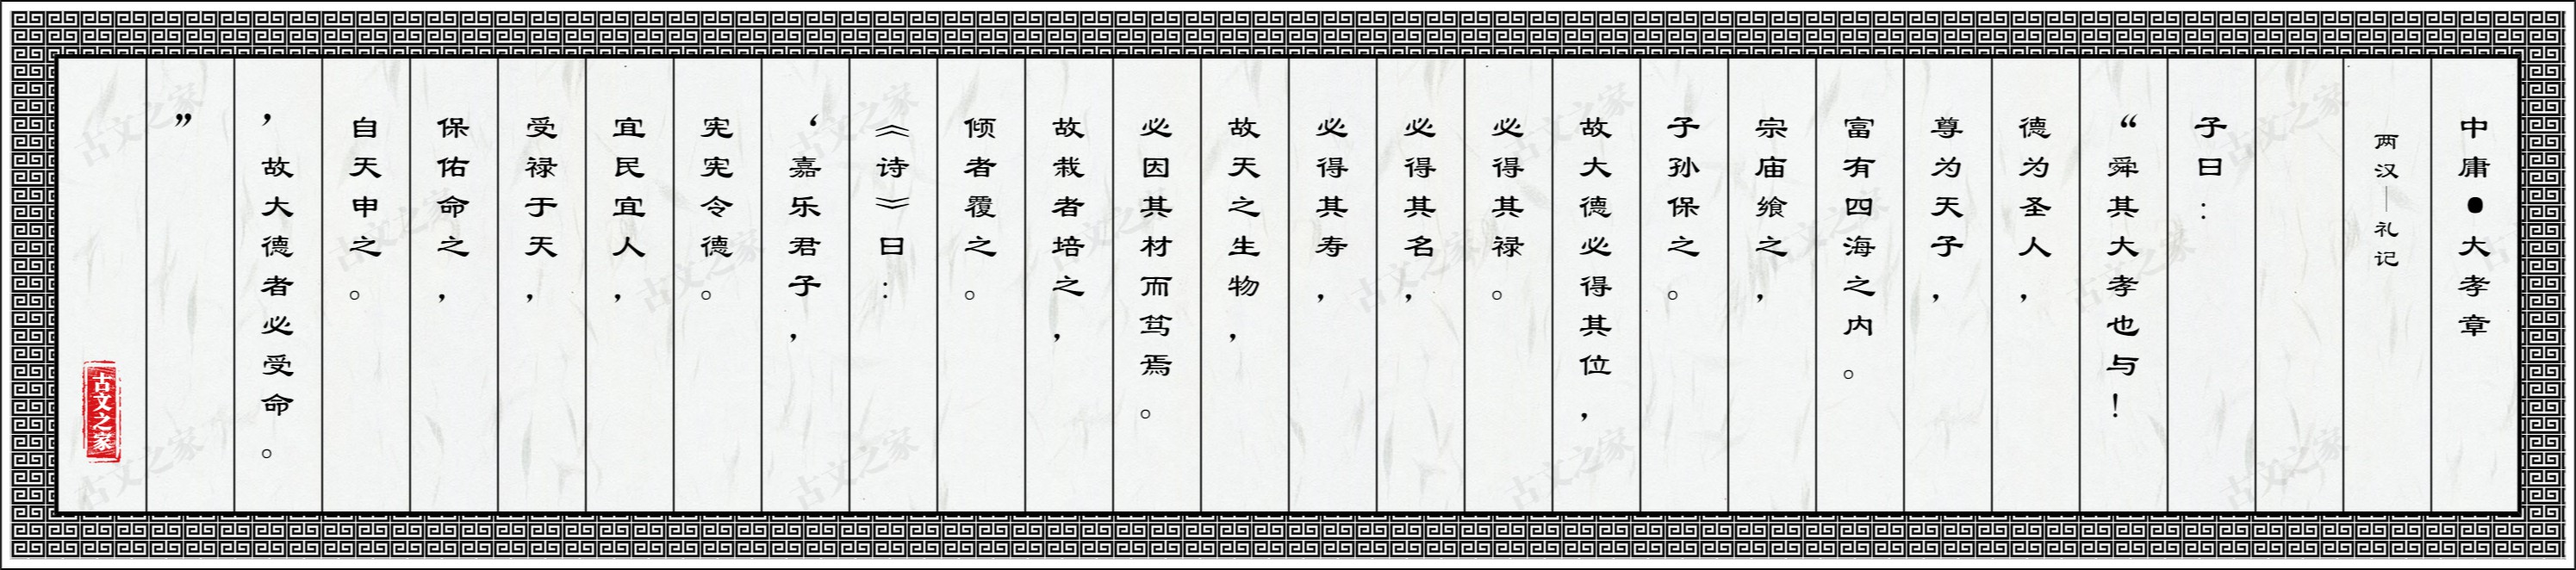 中庸●大孝章
两汉—礼记
子曰：
“舜其大孝也与！
德为圣人，
尊为天子，
富有四海之内。
宗庙飨之，
子孙保之。
故大德必得其位，
必得其禄。
必得其名，
必得其寿，
故天之生物，
必因其材而笃焉。
故栽者培之，
倾者覆之。
《诗》曰：
‘嘉乐君子，
宪宪令德。
宜民宜人，
受禄于天，
保佑命之，
自天申之。
’故大德者必受命。
”
古文之家